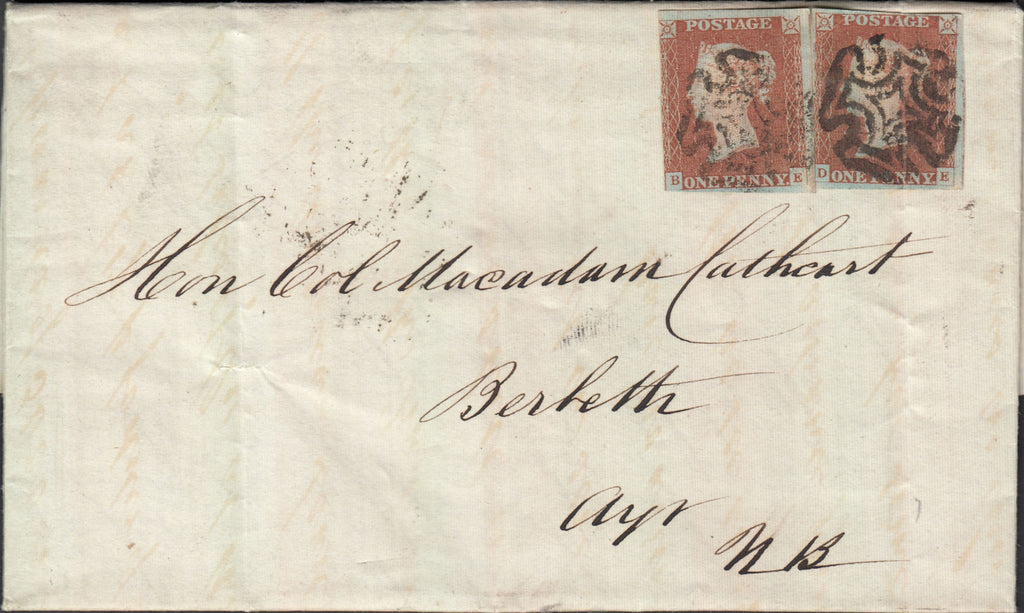 POSTAGE POSTAGE
B E D E
ONE PENNY ONE PENNY
Hon Col Macadam Cathcart
Berbeth
Ayr
N B